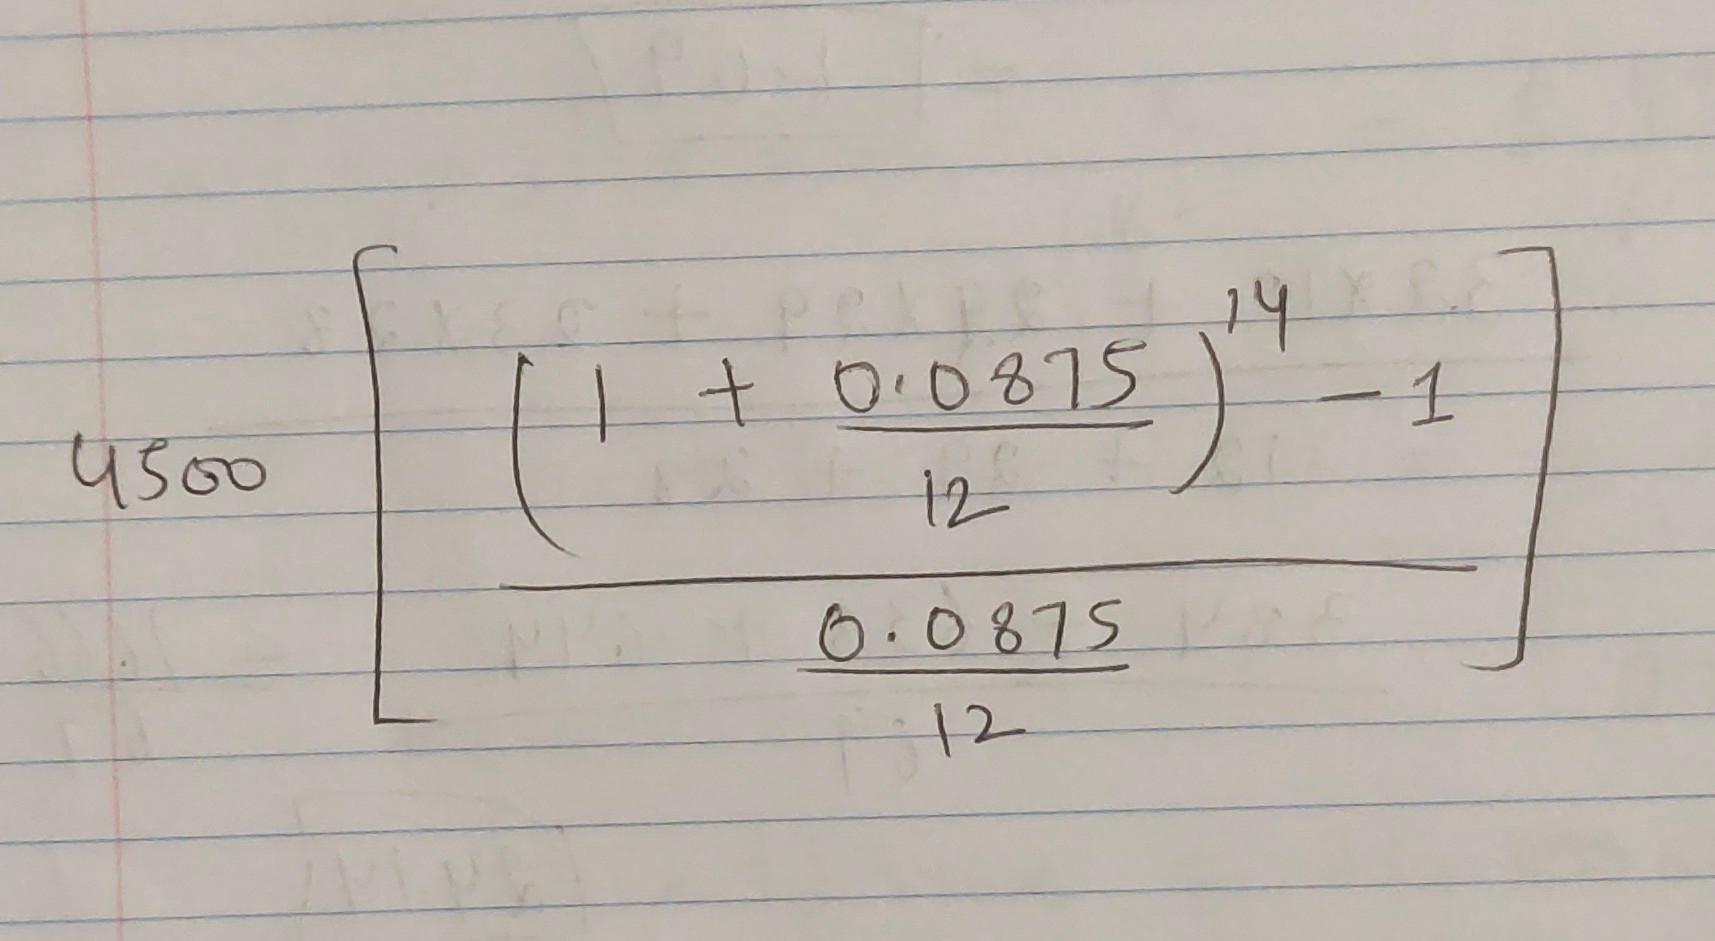 4500 [ ( 1 + 0.0875 / 12 )^14 - 1 / 0.0875 / 12 ]